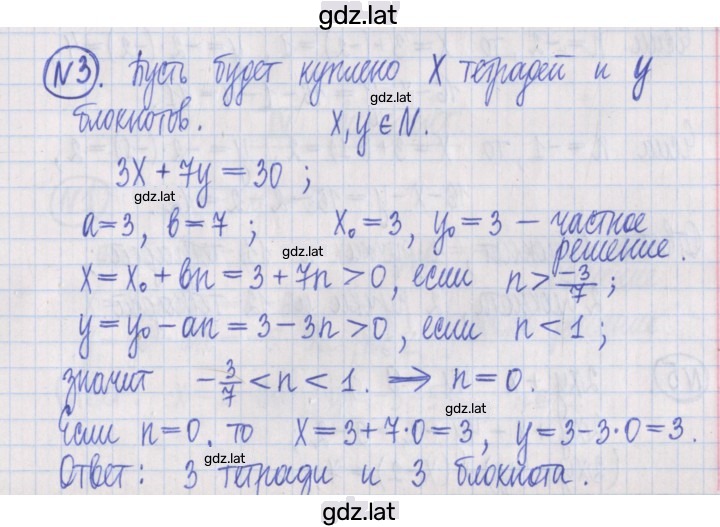 gdz.lat
№3. Пусть будет куплено x тетрадей и y
gdz.lat
блокнотов. x, y ∈ N.
3x + 7y = 30 ;
gdz.lat
a = 3, в = 7 ; x₀ = 3, y₀ = 3 – частное
gdz.lat
решение.
x = x₀ + вn = 3 + 7n > 0, если n > -3/7 ;
y = y₀ – an = 3 – 3n > 0, если n < 1 ;
значит -3/7 < n < 1. ⇒ n = 0.
gdz.lat
Если n = 0, то x = 3 + 7·0 = 3, y = 3 – 3·0 = 3.
gdz.lat
Ответ: 3 тетради и 3 блокнота.
gdz.lat